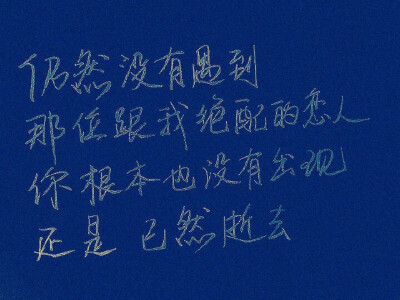 仍然没有遇到
那位跟我绝配的恋人
你根本也没有出现
还是 已然逝去